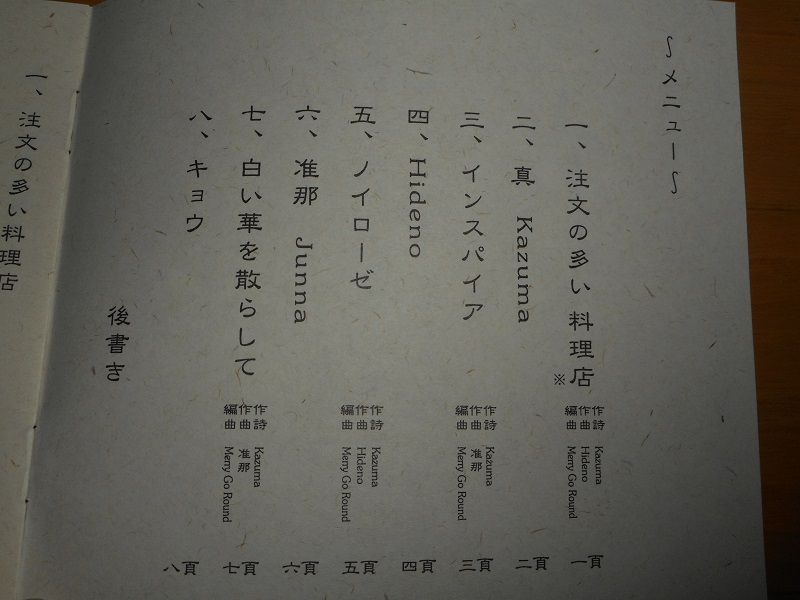 ～メニュー～
一、注文の多い料理店
※
作詩 Kazuma
作曲 Hideno
編曲 Merry Go Round
一頁
二、真 Kazuma
二頁
三、インスパイア
作詩 Kazuma
作曲 准那
編曲 Merry Go Round
三頁
四、Hideno
四頁
五、ノイローゼ
作詩 Kazuma
作曲 Hideno
編曲 Merry Go Round
五頁
六、准那 Junna
六頁
七、白い華を散らして
作詩 Kazuma
作曲 准那
編曲 Merry Go Round
七頁
八、キョウ
八頁
後書き
一、注文の多い料理店